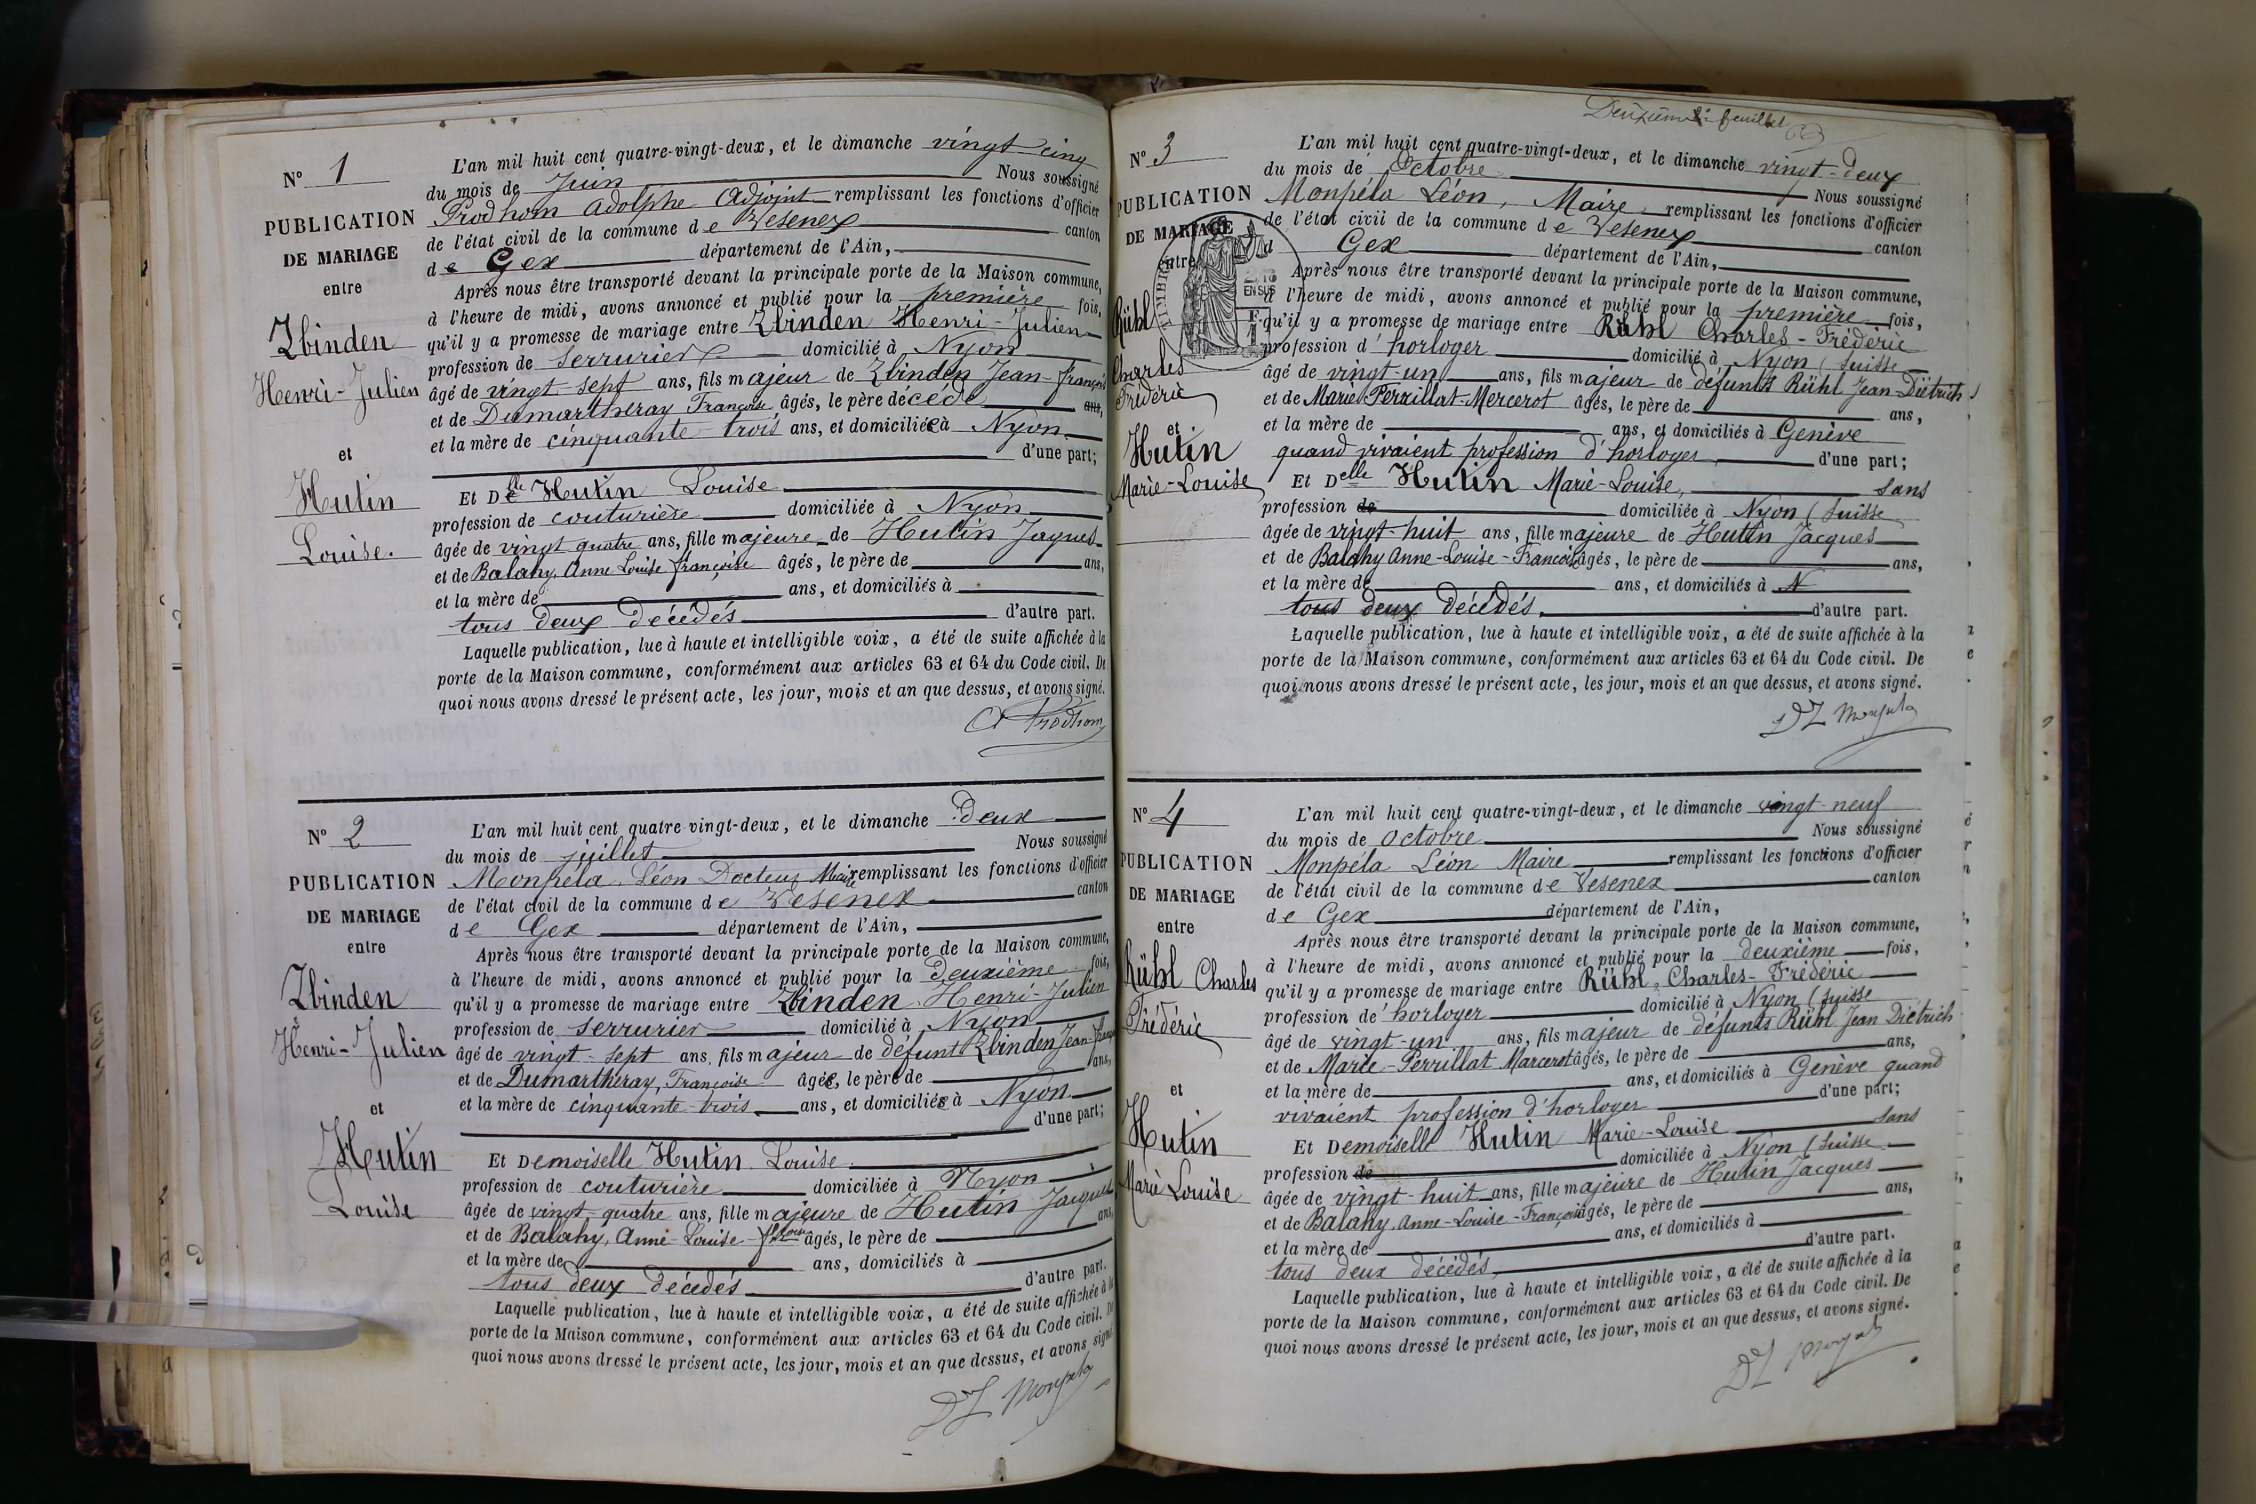 N° 1
PUBLICATION
DE MARIAGE
entre
Zbinden
Henri-Julien
et
Hutin
Louise.
L'an mil huit cent quatre-vingt-deux, et le dimanche vingt cinq
du mois de Juin Nous soussigné
Prodhom Adolphe Adjoint remplissant les fonctions d'officier
de l'état civil de la commune de Vesenex canton
de Gex département de l'Ain,
Après nous être transporté devant la principale porte de la Maison commune,
à l'heure de midi, avons annoncé et publié pour la première fois,
qu'il y a promesse de mariage entre Zbinden Henri-Julien
profession de serrurier domicilié à Nyon
âgé de vingt-sept ans, fils majeur de Zbinden Jean-François
et de Dumartheray Françoise âgés, le père de cédé ans,
et la mère de cinquante-trois ans, et domiciliée à Nyon
d'une part;
Et Delle Hutin Louise
profession de couturière domiciliée à Nyon
âgée de vingt quatre ans, fille majeure de Hutin Jaques
et de Balahy, Anne Louise françoise âgés, le père de ans,
et la mère de ans, et domiciliés à
tous deux décédés d'autre part.
Laquelle publication, lue à haute et intelligible voix, a été de suite affichée à la
porte de la Maison commune, conformément aux articles 63 et 64 du Code civil. De
quoi nous avons dressé le présent acte, les jour, mois et an que dessus, et avons signé.
A Prodhom
N° 2
PUBLICATION
DE MARIAGE
entre
Zbinden
Henri-Julien
et
Hutin
Louise
L'an mil huit cent quatre-vingt-deux, et le dimanche Deux
du mois de juillet Nous soussigné
Monpéla, Léon Docteur Maire remplissant les fonctions d'officier
de l'état civil de la commune de Vesenex canton
de Gex département de l'Ain,
Après nous être transporté devant la principale porte de la Maison commune,
à l'heure de midi, avons annoncé et publié pour la Deuxième fois,
qu'il y a promesse de mariage entre Zbinden, Henri-Julien
profession de serrurier domicilié à Nyon
âgé de vingt-sept ans, fils majeur de défunt Zbinden Jean-franç
et de Dumartheray, Françoise âgée, le père de ans,
et la mère de cinquante-trois ans, et domiciliée à Nyon
d'une part;
Et Demoiselle Hutin Louise
profession de couturière domiciliée à Nyon
âgée de vingt-quatre ans, fille majeure de Hutin Jacques
et de Balahy, Anne-Louise-fçoise âgés, le père de ans,
et la mère de ans, domiciliés à
tous deux décédés d'autre part.
Laquelle publication, lue à haute et intelligible voix, a été de suite affichée à la
porte de la Maison commune, conformément aux articles 63 et 64 du Code civil. De
quoi nous avons dressé le présent acte, les jour, mois et an que dessus, et avons signé
DL Monpela
Deuxième feuillet
N° 3
PUBLICATION
DE MARIAGE
entre
Rühl
Charles
Frédéric
et
Hutin
Marie-Louise
L'an mil huit cent quatre-vingt-deux, et le dimanche vingt-deux
du mois de Octobre Nous soussigné
Monpéla Léon, Maire remplissant les fonctions d'officier
de l'état civil de la commune de Vesenex canton
d Gex département de l'Ain,
Après nous être transporté devant la principale porte de la Maison commune,
à l'heure de midi, avons annoncé et publié pour la première fois,
qu'il y a promesse de mariage entre Rühl Charles-Frédéric
profession d'horloger domicilié à Nyon (Suisse
âgé de vingt-un ans, fils majeur de défunts Rühl Jean-Diétrich
et de Marie Perrillat-Mercerot âgés, le père de ans,
et la mère de ans, et domiciliés à Genève
quand vivaient profession d'horloger d'une part;
Et Delle Hutin Marie-Louise, sans
profession de domiciliée à Nyon (Suisse
âgée de vingt-huit ans, fille majeure de Hutin Jacques
et de Balahy Anne-Louise-Françoise âgés, le père de ans,
et la mère de ans, et domiciliés à N
tous deux décédés. d'autre part.
Laquelle publication, lue à haute et intelligible voix, a été de suite affichée à la
porte de la Maison commune, conformément aux articles 63 et 64 du Code civil. De
quoi nous avons dressé le présent acte, les jour, mois et an que dessus, et avons signé.
DL Monpela
N° 4
PUBLICATION
DE MARIAGE
entre
Rühl Charles
Frédéric
et
Hutin
Marie Louise
L'an mil huit cent quatre-vingt-deux, et le dimanche vingt-neuf
du mois de Octobre Nous soussigné
Monpéla Léon Maire remplissant les fonctions d'officier
de l'état civil de la commune de Vesenex canton
de Gex département de l'Ain,
Après nous être transporté devant la principale porte de la Maison commune,
à l'heure de midi, avons annoncé et publié pour la deuxième fois,
qu'il y a promesse de mariage entre Rühl, Charles-Frédéric
profession d'horloger domicilié à Nyon (Suisse
âgé de vingt-un ans, fils majeur de défunts Rühl Jean Diétrich
et de Marie-Perrillat Marcerot âgés, le père de ans,
et la mère de ans, et domiciliés à Genève quand
vivaient profession d'horloger d'une part;
Et Demoiselle Hutin Marie-Louise sans
profession de domiciliée à Nyon (Suisse
âgée de vingt-huit ans, fille majeure de Hutin Jacques
et de Balahy, Anne-Louise-Françoise âgés, le père de ans,
et la mère de ans, et domiciliés à
tous deux décédés, d'autre part.
Laquelle publication, lue à haute et intelligible voix, a été de suite affichée à la
porte de la Maison commune, conformément aux articles 63 et 64 du Code civil. De
quoi nous avons dressé le présent acte, les jour, mois et an que dessus, et avons signé.